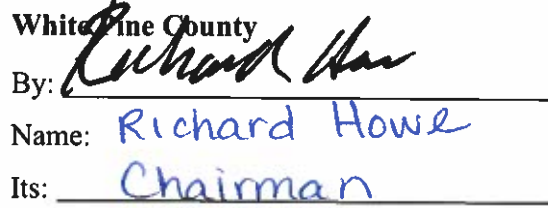 White Pine County
By: Richard Howe
Name: Richard Howe
Its: Chairman